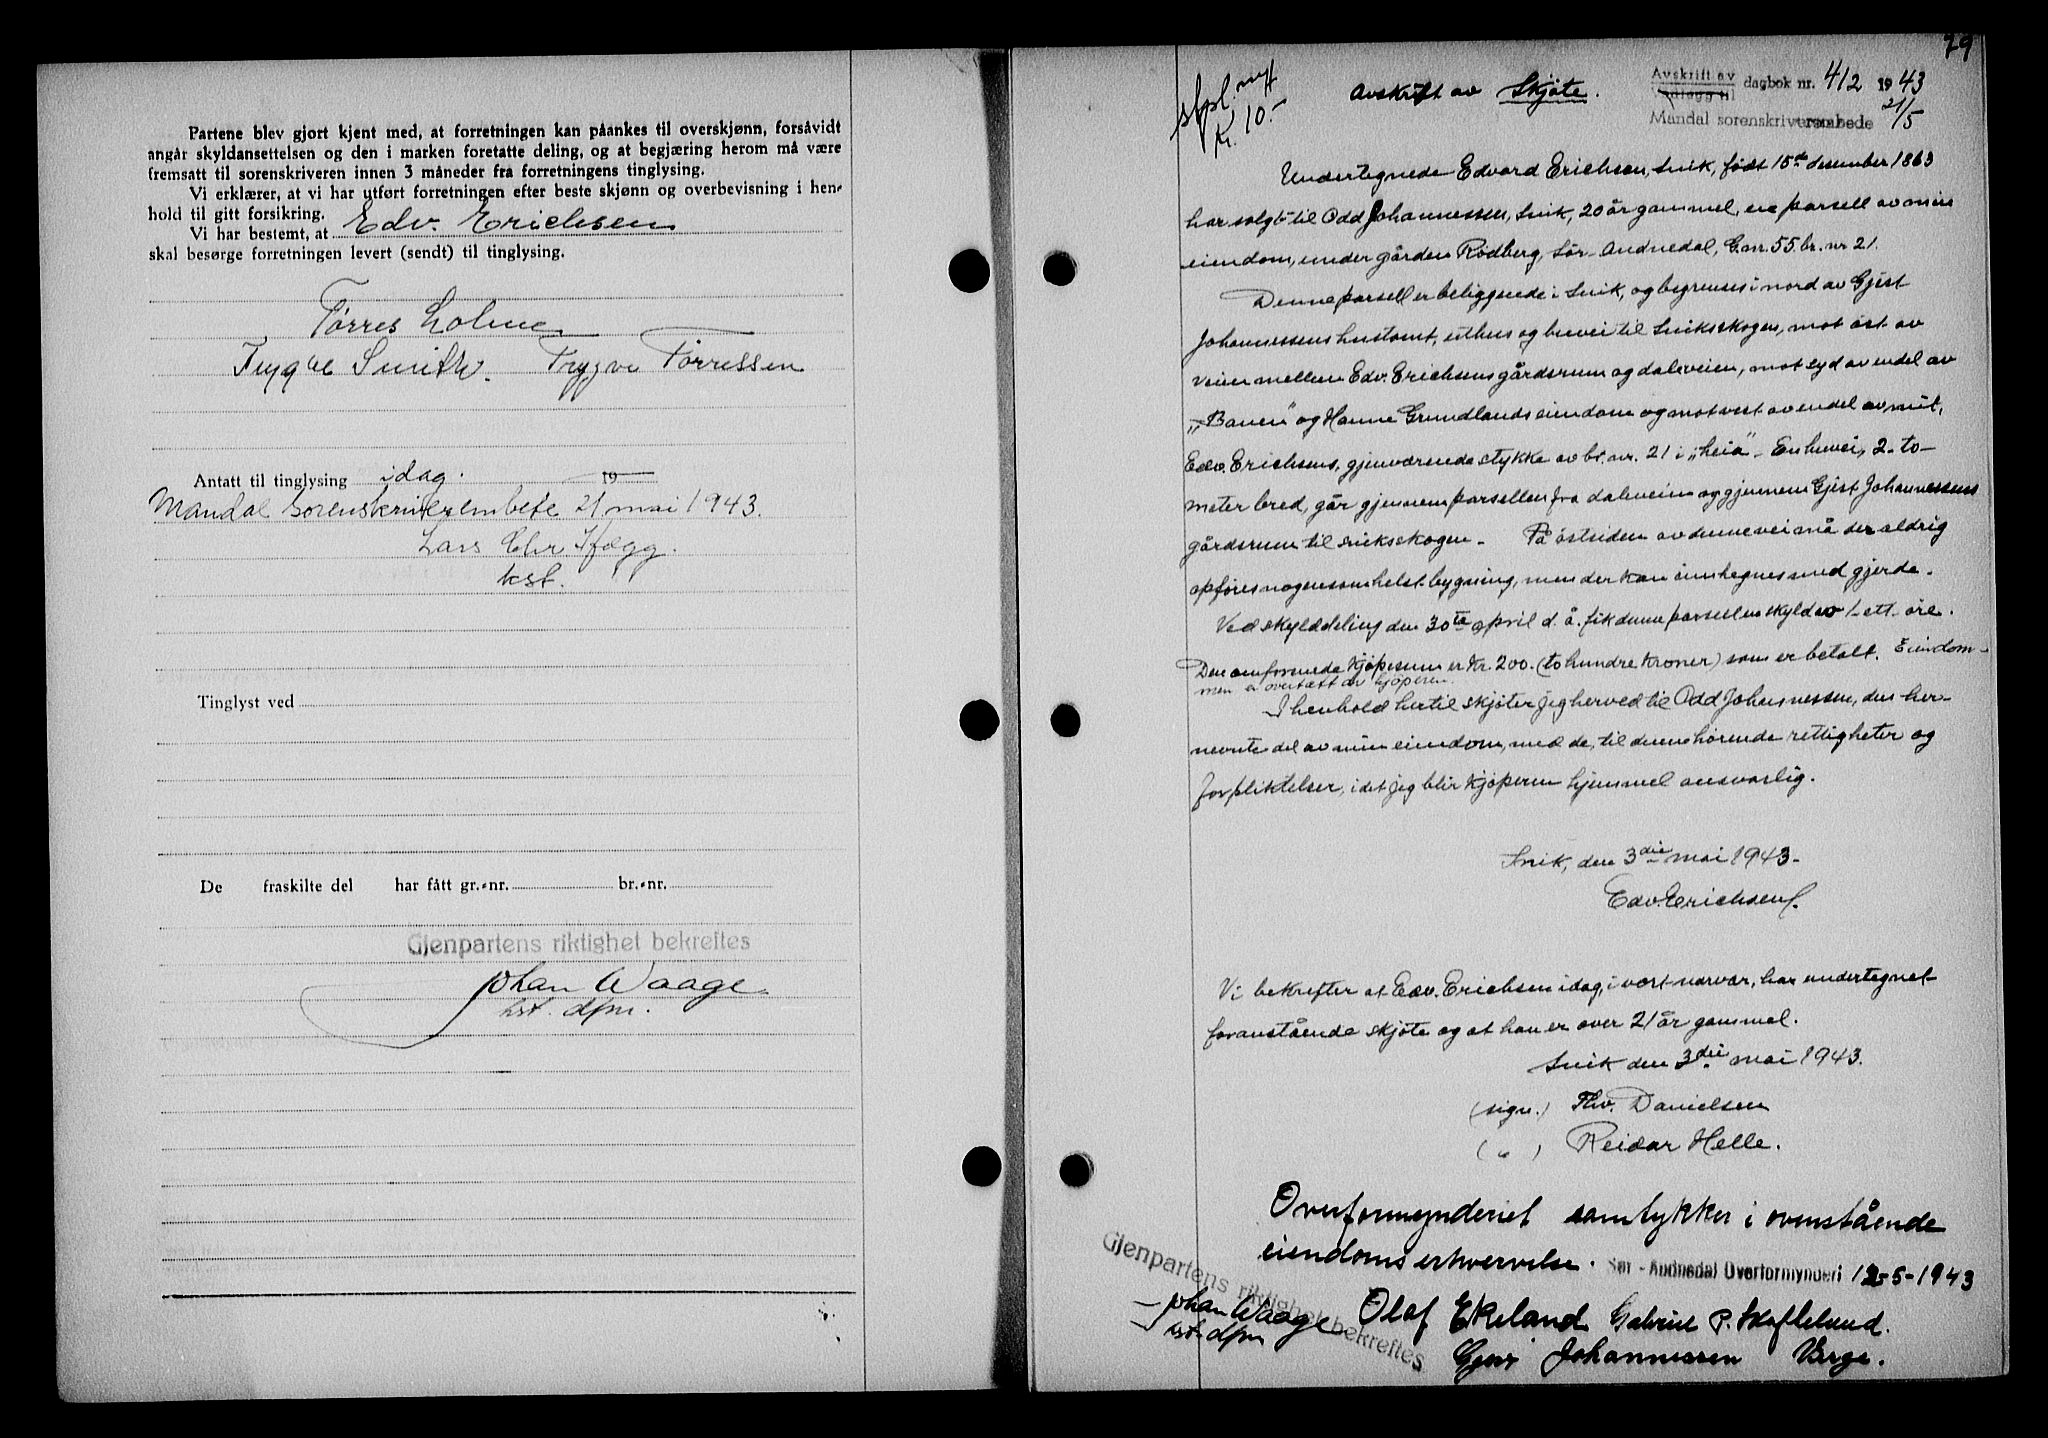 Partene blev gjort kjent med, at forretningen kan påankes til overskjønn, forsåvidt
angår skyldansettelsen og den i marken foretatte deling, og at begjæring herom må være
fremsatt til sorenskriveren innen 3 måneder fra forretningens tinglysing.
Vi erklærer, at vi har utført forretningen efter beste skjønn og overbevisning i hen-
hold til gitt forsikring.
Vi har bestemt, at Edv. Erichsen
skal besørge forretningen levert (sendt) til tinglysing.
Tørres Holme
Trygve Smith. Trygve Tørressen
Antatt til tinglysing idag. 19
Mandal Sorenskriverembete 21 mai 1943.
Lars Chr
kst.
Tinglyst ved
De fraskilte del har fått gr.-nr. br.-nr.
Gjenpartens riktighet bekreftes
Johan Waage
kst. dfm.
79
stpl. mrk
Kr. 10.-
Avskrift av Skjøte.
Avskrift av dagbok nr. 412 1943
Vedlegg til
21/5
Mandal sorenskriverembede
Undertegnede Edvard Erichsen, Svik, født 15de desember 1863
har solgt til Odd Johannessen, Svik, 20 år gammel, en parsell av min
eiendom, under gården Rødberg, Sør-Audnedal, G.nr. 55 br. nr 21.
Denne parsell er beliggende i Svik, og begrenses i nord av Gjest
Johannessens hustomt, uthus og hevei til Sviksskogen, mot øst av
veien mellem Edv. Erichsens gårdsrum og daleveien, mot syd av endel av
"Banen" og Hanne Grundlands eiendom og mot vest av endel av mitt,
Edv. Erichsens, gjenværende stykke av br. nr. 21 i "heia" - En hevei, 2- to-
meter bred, går gjennem parsellen fra daleveien og gjennem Gjest Johannessens
gårdsrum til sviksskogen - På østsiden av denne vei må der aldrig
opføres nogensomhelst bygning, men der kan innhegnes med gjerde.
Ved skylddeling den 30te april d. å. fik denne parsellen skyld av 1- ett- øre.
Den omforenede kjøpesum er Kr. 200. (to hundre kroner) som er betalt. Eiendom-
men er overtatt av kjøperen.
I henhold hertil skjøter jeg herved til Odd Johannessen, den her-
nevnte del av min eiendom, med de, til denne hørende rettigheter og
forpliktelser, idet jeg blir kjøperen hjemmel ansvarlig.
Svik, den 3die mai 1943-
Edv. Erichsen.
Vi bekrefter at Edv. Erichsen idag, i vort nærvær, har undertegnet
foranstående skjøte og at han er over 21 år gammel.
Svik den 3die mai 1943.
(sign.) Thv. Danielsen
( " ) Reidar Helle.
Overformynderiet samtykker i ovenstående
eiendomserhvervelse. Sør-Audnedal Overformynderi 12-5-1943
Gjenpartens riktighet bekreftes
Johan Waage
kst. dfm
Olaf Ekeland Gabriel P.
Johannessen Verge.